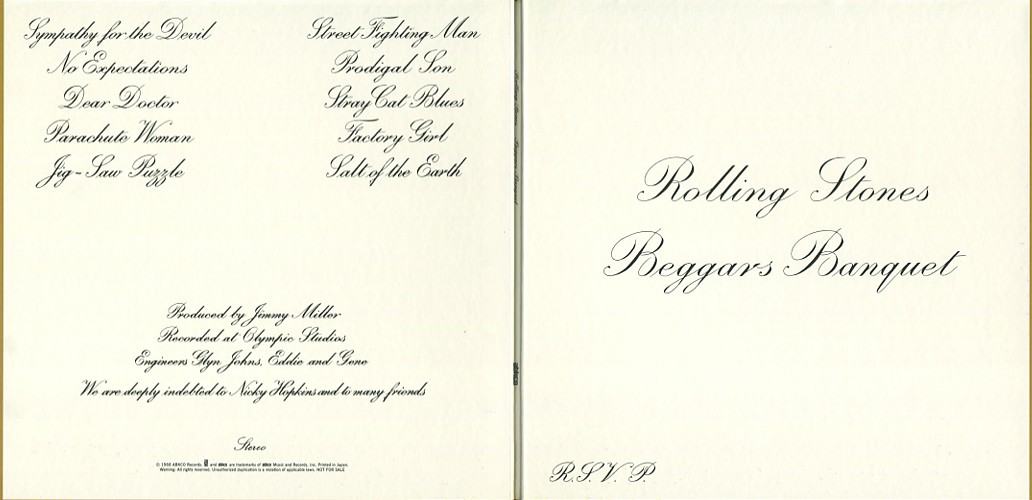 Sympathy for the Devil
No Expectations
Dear Doctor
Parachute Woman
Jig-Saw Puzzle
Street Fighting Man
Prodigal Son
Stray Cat Blues
Factory Girl
Salt of the Earth
Produced by Jimmy Miller
Recorded at Olympic Studios
Engineers Glyn Johns, Eddie and Gene
We are deeply indebted to Nicky Hopkins and to many friends
Stereo
ABKCO Records. and abkco are trademarks of abkco Music and Records, Inc. Printed in Japan.
Warning: All rights reserved. Unauthorized duplication is a violation of applicable laws. NOT FOR SALE
abkco
Rolling Stones
Beggars Banquet
R.S.V.P.